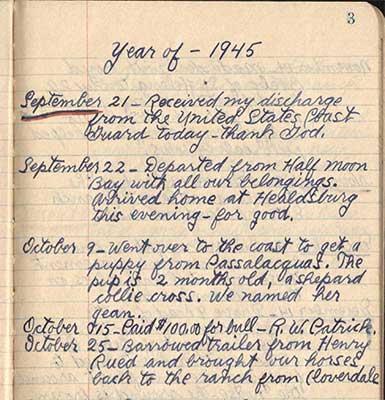 3
Year of - 1945
September 21 - Received my discharge
from the United States Coast
Guard today - thank God.
September 22 - Departed from Half Moon
Bay with all our belongings.
Arrived home at Healdsburg
this evening - for good.
October 9 - Went over to the coast to get a
puppy from Passalacquas. The
pup is 2 months old, a shepard
collie cross. We named her
gean.
October 15 - Paid $100.00 for bull - R. W. Patrick.
October 25 - Barrowed trailer from Henry
Rued and brought our horses
back to the ranch from Cloverdale